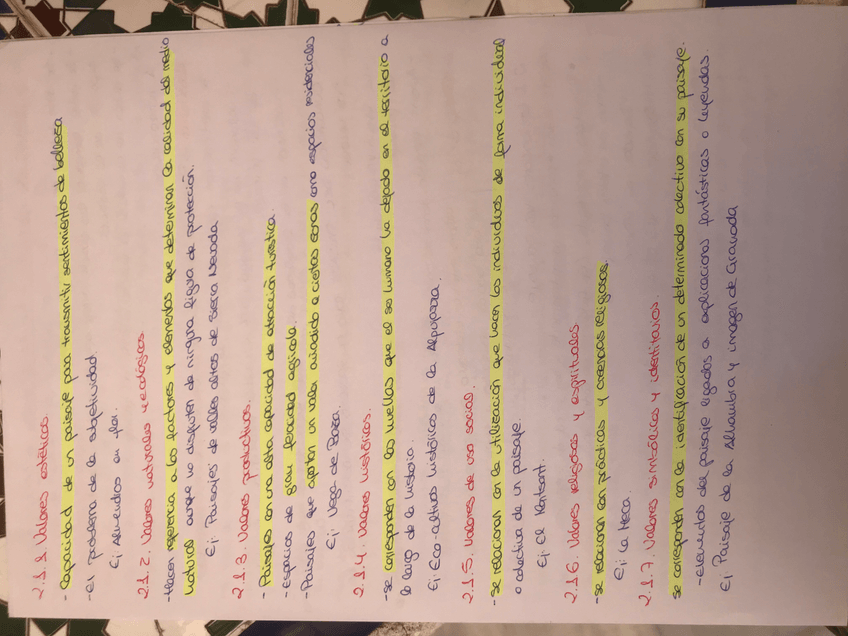 2.1.1. Valores estéticos.
- Capacidad de un paisaje para transmitir sentimientos de belleza
- El problema de la subjetividad.
Ej Almendros en flor.
2.1.2. Valores naturales y ecológicos.
- Hacen referencia a los factores y elementos que determinan la calidad del medio
natural aunque no disfruten de ninguna figura de protección.
Ej Paisajes de valles altos de Sierra Nevada
2.1.3. Valores productivos.
- Paisajes con una alta capacidad de atracción turística.
- Espacios de gran feracidad agrícola.
- Paisajes que aportan un valor añadido a ciertas zonas como espacios residenciales
Ej: Vega de Baza.
2.1.4. Valores históricos.
- Se corresponden con las huellas que el ser humano ha dejado en el territorio a
lo largo de la historia.
Ej Eco-cultivos históricos de la Alpujarra.
2.1.5. Valores de uso social.
- Se relacionan con la utilización que hacen los individuos de forma individual
o colectiva de un paisaje.
Ej: El
2.1.6. Valores religiosos y espirituales
- Se relacionan con prácticas y creencias religiosas.
Ej: La Meca.
2.1.7. Valores simbólicos y identitarios.
Se corresponden con la identificación de un determinado colectivo con su paisaje.
- Elementos del paisaje ligados a explicaciones fantásticas o leyendas.
Ej Paisaje de la Alhambra y imagen de Granada